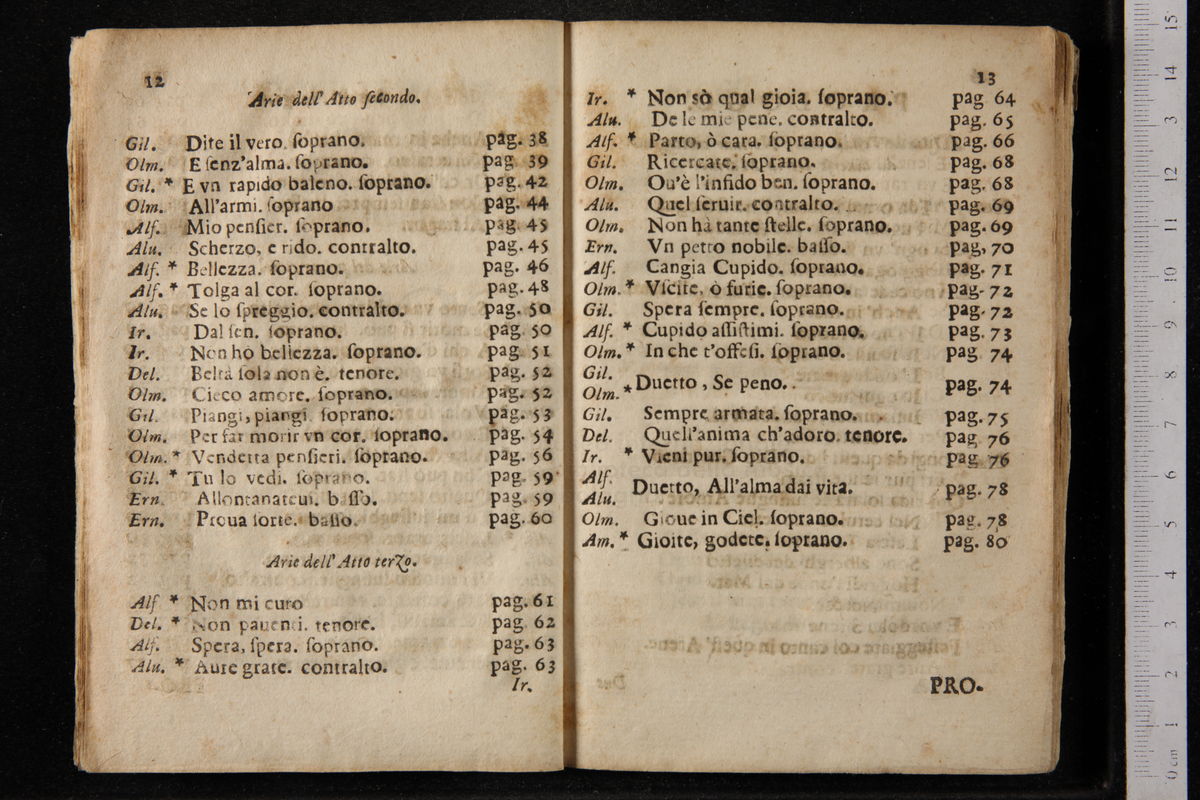 12
Arie dell' Atto ſecondo.
Gil. Dite il vero. ſoprano. pag. 38
Olm. E ſenz'alma. ſoprano. pag 39
Gil. * E vn rapido baleno. ſoprano. pag. 42
Olm. All'armi. ſoprano pag. 44
Alf. Mio penſier. ſoprano. pag. 45
Alu. Scherzo, e rido. contralto. pag. 45
Alf. * Bellezza. ſoprano. pag. 46
Alf. * Tolga al cor. ſoprano. pag. 48
Alu. Se lo ſpreggio. contralto. pag. 50
Ir. Dal ſen. ſoprano. pag. 50
Ir. Non ho bellezza. ſoprano. pag. 51
Del. Beltà ſola non è. tenore. pag. 52
Olm. Cieco amore. ſoprano. pag. 52
Gil. Piangi, piangi. ſoprano. pag. 53
Olm. Per far morir vn cor. ſoprano. pag. 54
Olm. * Vendetta penſieri. ſoprano. pag. 56
Gil. * Tu lo vedi. ſoprano. pag. 59
Ern. Allontanateui. baſſo. pag. 59
Ern. Proua ſorte. baſſo. pag. 60
Arie dell' Atto terzo.
Alf * Non mi curo pag. 61
Del. * Non pauenti. tenore. pag. 62
Alf. Spera, ſpera. ſoprano. pag. 63
Alu. * Aure grate. contralto. pag. 63
Ir.
13
Ir. * Non sò qual gioia. ſoprano. pag 64
Alu. De le mie pene. contralto. pag. 65
Alf. * Parto, ò cara. ſoprano. pag. 66
Gil. Ricercate. ſoprano. pag. 68
Olm. Ou'è l'infido ben. ſoprano. pag. 68
Alu. Quel ſeruir. contralto. pag. 69
Olm. Non hà tante ſtelle. ſoprano. pag. 69
Ern. Vn petto nobile. baſſo. pag, 70
Alf. Cangia Cupido. ſoprano. pag. 71
Olm. * Vſcite, ò furie. ſoprano. pag. 72
Gil. Spera ſempre. ſoprano. pag. 72
Alf. * Cupido aſſiſtimi. ſoprano. pag. 73
Olm. * In che t'offeſi. ſoprano. pag. 74
Gil.
Olm. * Duetto, Se peno. . pag. 74
Gil. Sempre armata. ſoprano. pag. 75
Del. Quell'anima ch'adoro. tenore. pag 76
Ir. * Vieni pur. ſoprano. pag 76
Alf.
Alu. Duetto, All'alma dai vita. pag. 78
Olm. Gioue in Ciel. ſoprano. pag. 78
Am. * Gioite, godete. ſoprano. pag. 80
PRO.
0 cm 1 2 3 4 5 6 7 8 9 10 11 12 13 14 15